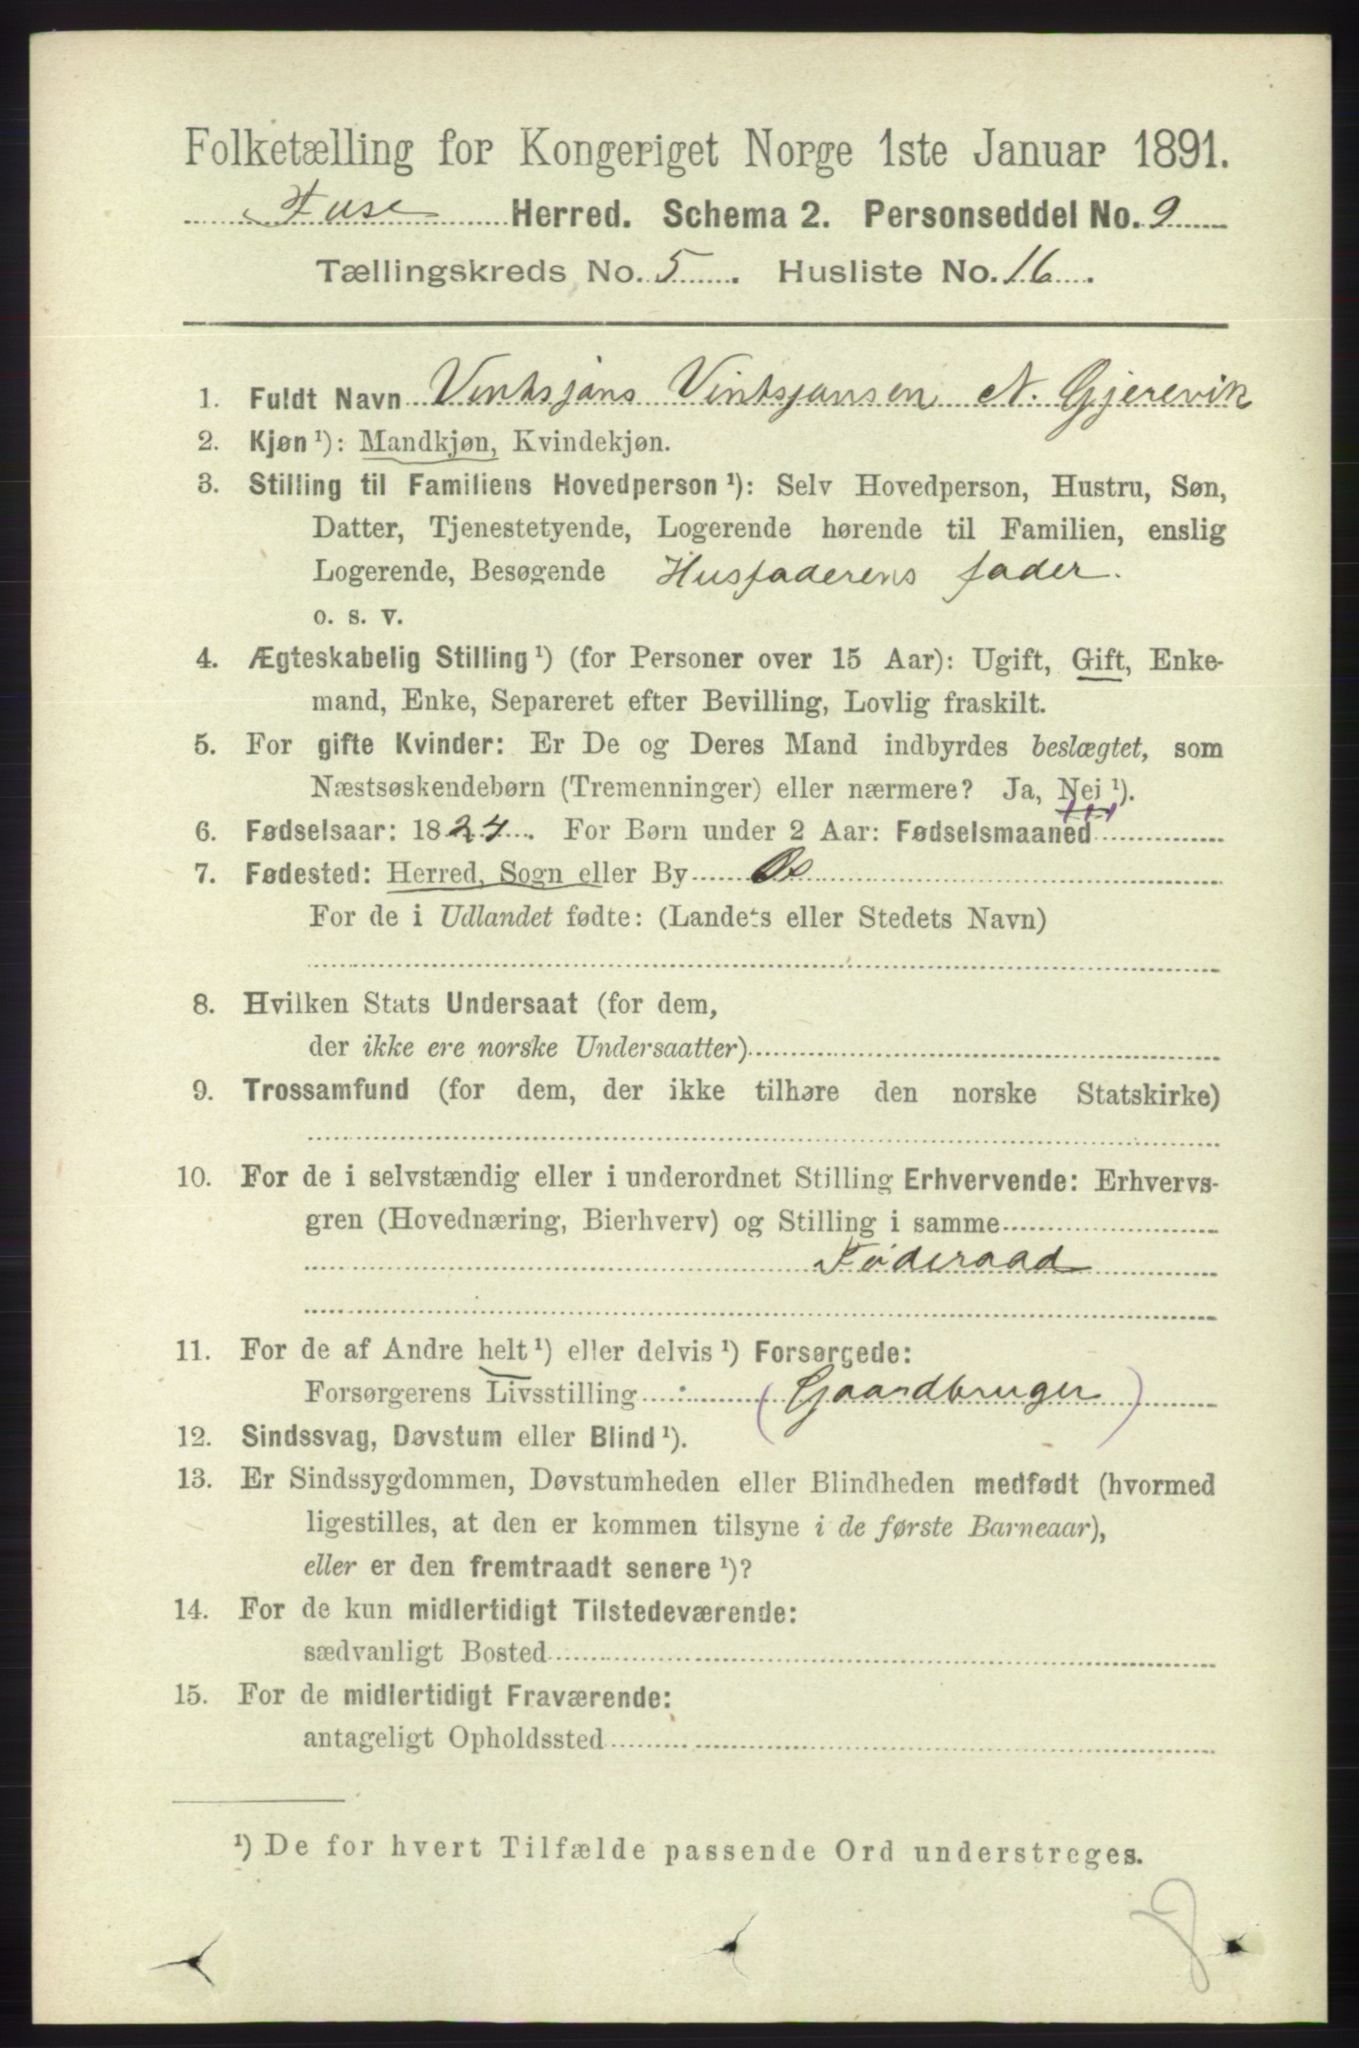 Folketælling for Kongeriget Norge 1ste Januar 1891.
Fuse Herred. Schema 2. Personseddel No. 9
Tællingskreds No. 5. Husliste No. 16.
1. Fuldt Navn Vintsjans Vintsjansen N. Gjerevik
2. Kjøn ¹): Mandkjøn, Kvindekjøn.
3. Stilling til Familiens Hovedperson ¹): Selv Hovedperson, Hustru, Søn,
Datter, Tjenestetyende, Logerende hørende til Familien, enslig
Logerende, Besøgende Husfaderens fader.
o. s. v.
4. Ægteskabelig Stilling ¹) (for Personer over 15 Aar): Ugift, Gift, Enke-
mand, Enke, Separeret efter Bevilling, Lovlig fraskilt.
5. For gifte Kvinder: Er De og Deres Mand indbyrdes beslægtet, som
Næstsøskendebørn (Tremenninger) eller nærmere? Ja, Nei ¹).
6. Fødselsaar: 1824. For Børn under 2 Aar: Fødselsmaaned
7. Fødested: Herred, Sogn eller By Os
For de i Udlandet fødte: (Landets eller Stedets Navn)
8. Hvilken Stats Undersaat (for dem,
der ikke ere norske Undersaatter)
9. Trossamfund (for dem, der ikke tilhøre den norske Statskirke)
10. For de i selvstændig eller i underordnet Stilling Erhvervende: Erhvervs-
gren (Hovednæring, Bierhverv) og Stilling i samme
Føderaad
11. For de af Andre helt ¹) eller delvis ¹) Forsørgede:
Forsørgerens Livsstilling : (Gaardbruger)
12. Sindssvag, Døvstum eller Blind ¹).
13. Er Sindssygdommen, Døvstumheden eller Blindheden medfødt (hvormed
ligestilles, at den er kommen tilsyne i de første Barneaar),
eller er den fremtraadt senere ¹)?
14. For de kun midlertidigt Tilstedeværende:
sædvanligt Bosted
15. For de midlertidigt Fraværende:
antageligt Opholdssted
¹) De for hvert Tilfælde passende Ord understreges.